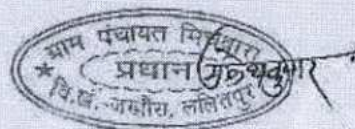 ग्राम पंचायत मिर्चवारा
प्रधान
वि.खं.-जखौरा, ललितपुर